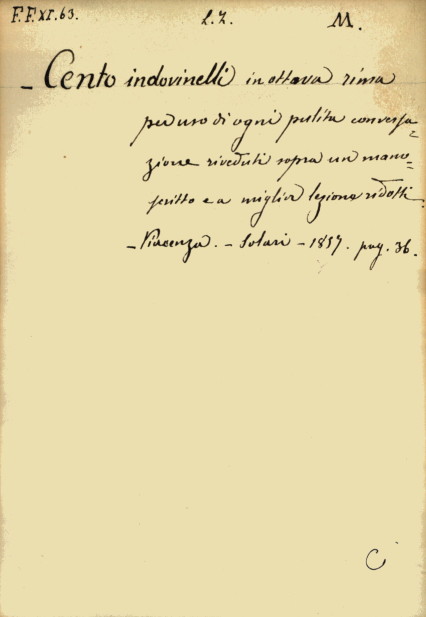 F.F.XI.63. L.Z. M.
- Cento indovinelli in ottava rima
per uso di ogni pulita conversa=
zione riveduti sopra un mano=
scritto e a miglior lezione ridotti.
- Piacenza. - Solari - 1857. pag. 36.
C